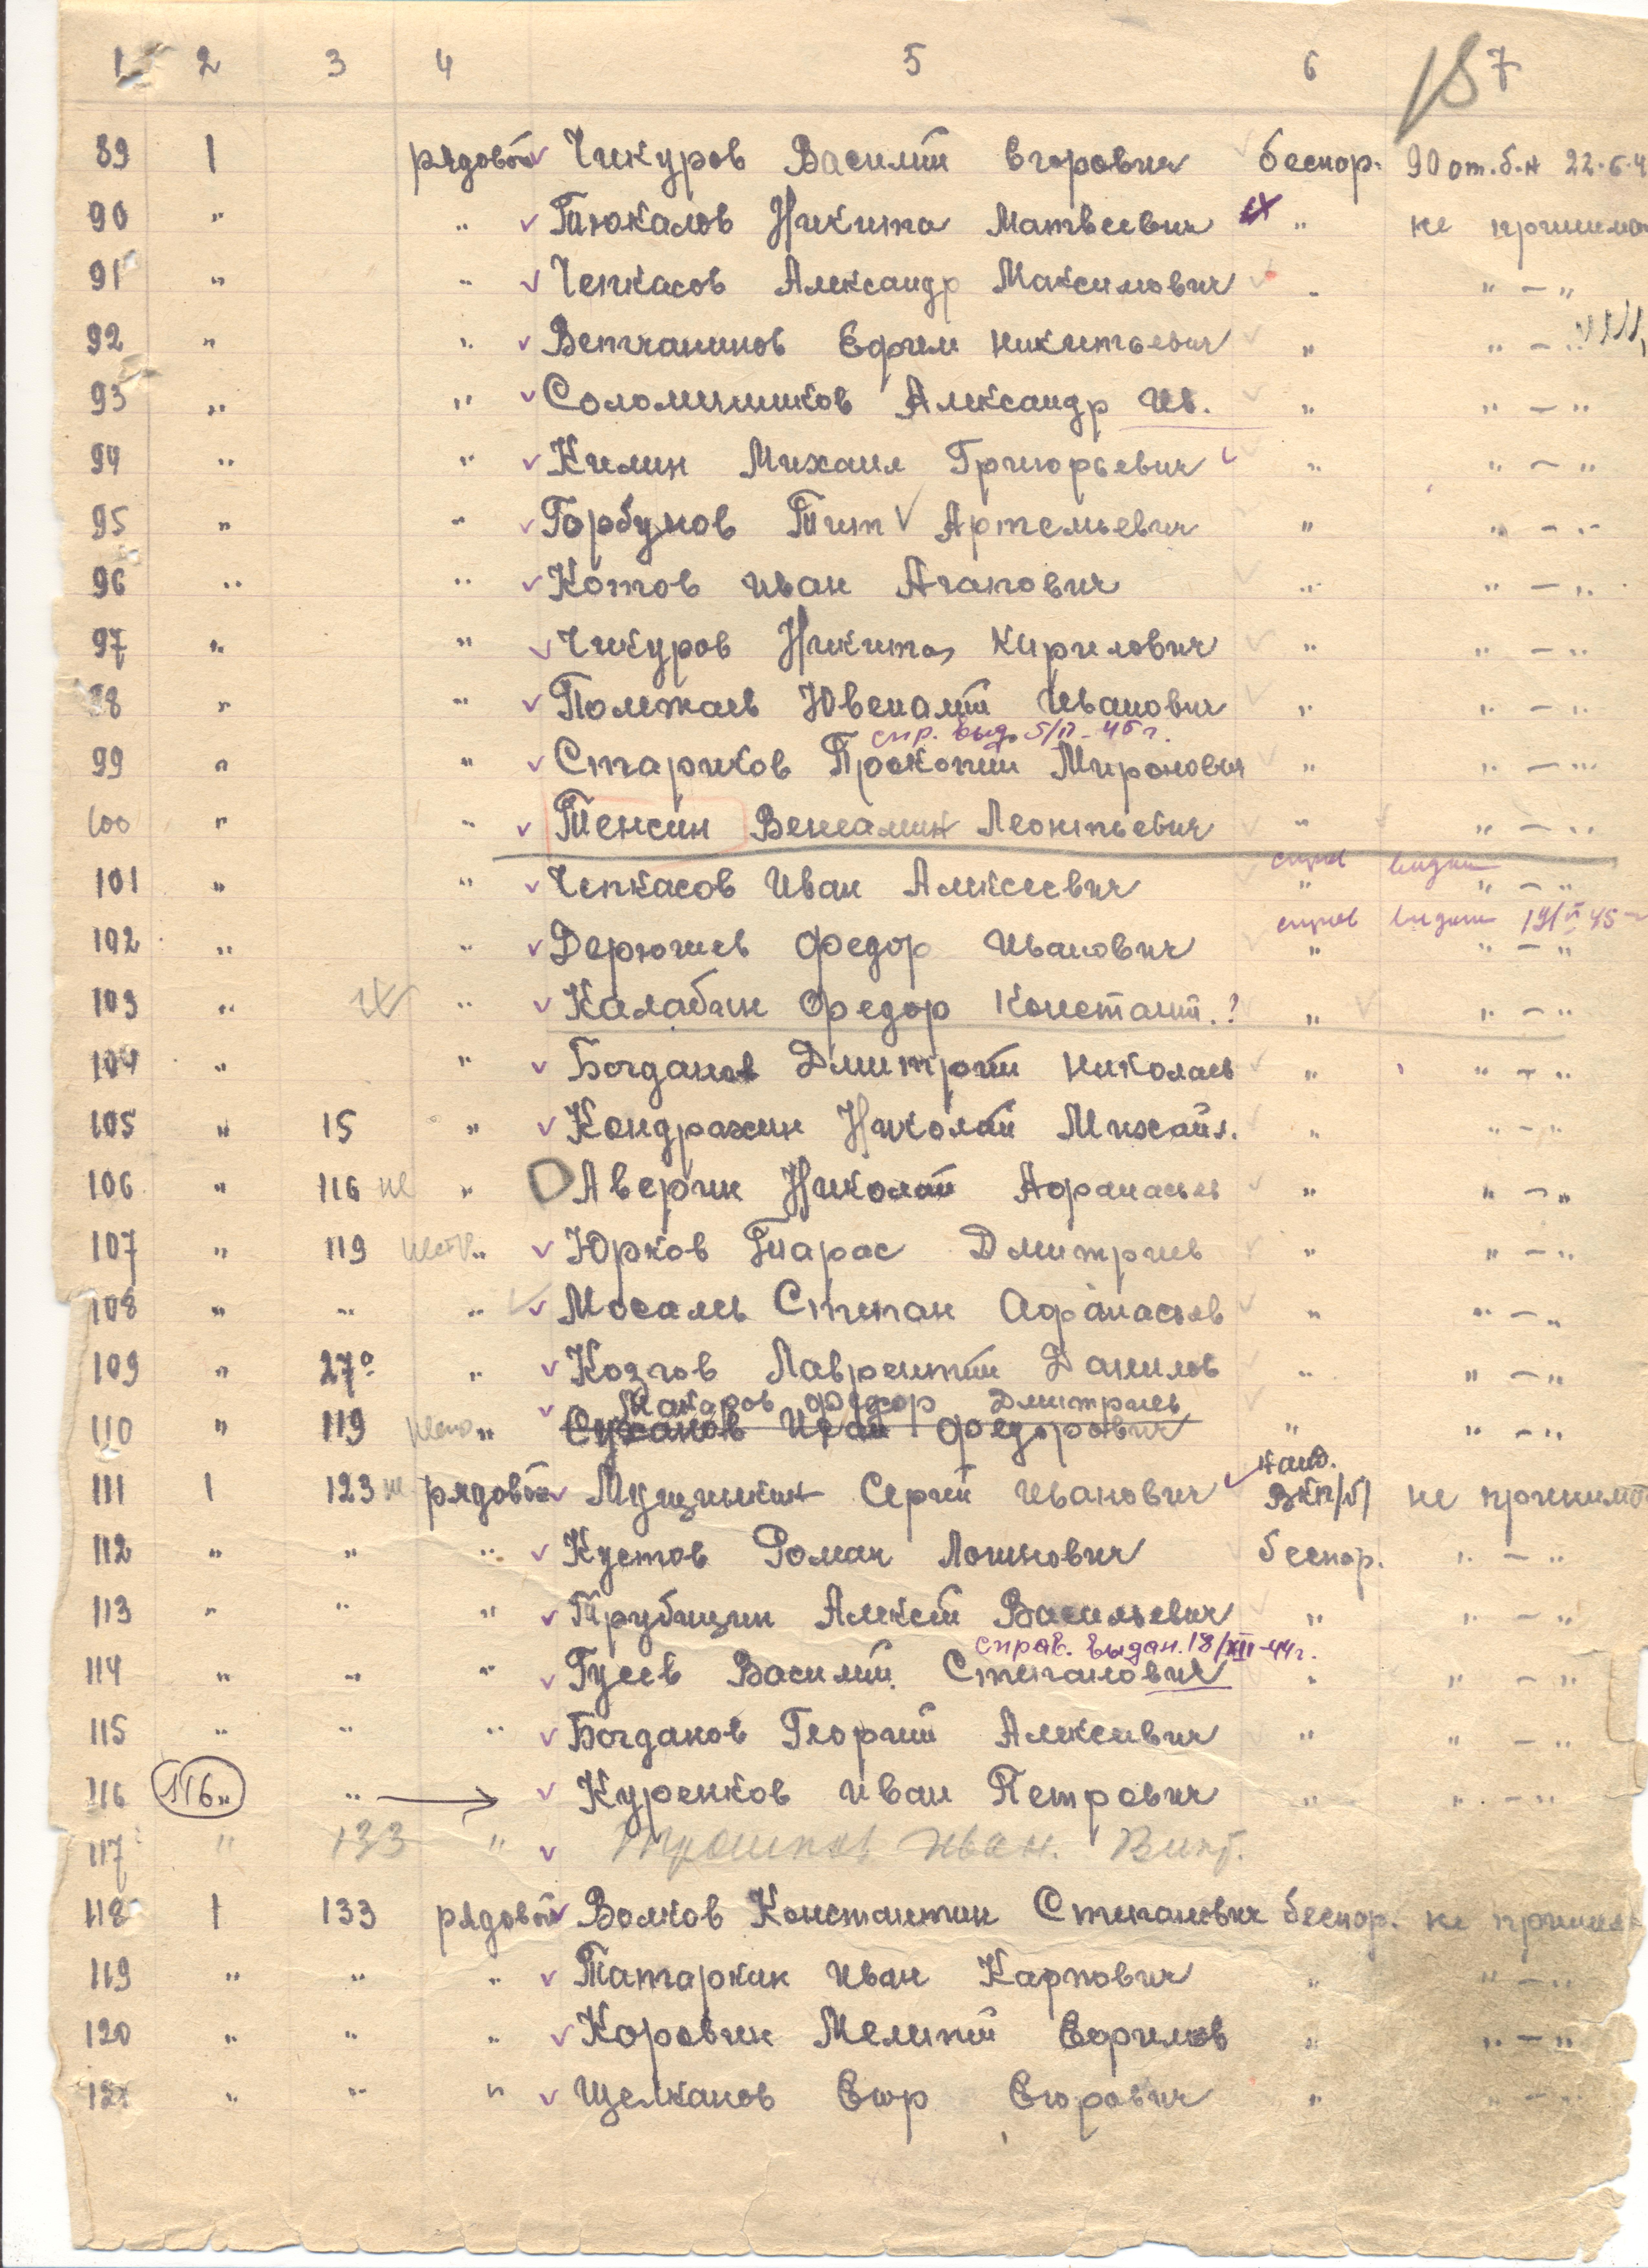 1 2 3 4 5 6 7
89 1 рядовой Чикуров Василий Егорович беспар. 90 от.б.н 22.6.4
90 " " Тюкалов Никита Матвеевич " не принима
91 " " Чепкасов Александр Максимович " " - "
92 " " Ветчанинов Ефрем Никитьевич " " - "
93 " " Соломенников Александр Ив. " " - "
94 " " Килин Михаил Григорьевич " " - "
95 " " Горбунов Тит Артемьевич " " - "
96 " " Котов Иван Агапович " " - "
97 " " Чикуров Никита Кирилович " " - "
98 " " Полежаев Ювеналий Иванович " " - "
спр. выд. 5/II-45г.
99 " " Стариков Прокопий Миронович " " - "
100 " " Тенсин Вениамин Леонтьевич " " - "
справ выдан
101 " " Чепкасов Иван Алексеевич " " - "
справ выдан
102 " " Дерюшев Федор Иванович " " - "
103 " " Калабин Федор Констант. ? " " - "
104 " " Богданов Дмитрий Николаев " " - "
105 " 15 " Кондрахин Николай Михайл. " " - "
106 " 116 " Аверин Николай Афанасьев " " - "
107 " 119 " Юрков Тарас Дмитриев " " - "
108 " " " Мосалев Степан Афанасьев " " - "
109 " 270 " Козлов Лаврентий Данилов " " - "
Макаров Федор Дмитриев
110 " 119 " Суханов Иван Федорович " " - "
канд.
111 1 123 рядовой Мущинкин Сергей Иванович ВКП/б/ не принимал
112 " " " Кустов Роман Логинович беспар. " - "
113 " " " Трубицин Алексей Васильевич " " - "
справ. выдан. 18/XII-44г.
114 " " " Гусев Василий Степанович " " - "
115 " " " Богданов Георгий Алексеевич " " - "
116 116 " " Куренков Иван Петрович " " - "
117 " 133 " Иван. Викт.
118 1 133 рядовой Волков Константин Степанович беспар. не принима
119 " " " Татаркин Иван Карпович " " - "
120 " " " Коровин Мелитий Ефримов " " - "
121 " " " Щелканов Егор Егорович " " - "